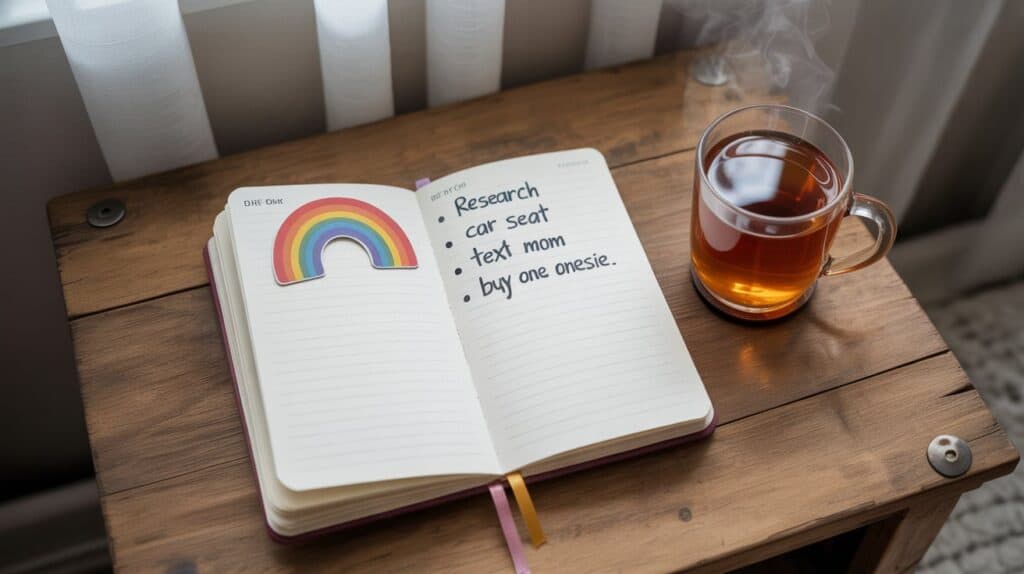 • Research
• car seat
• text mom
• buy one onesie.